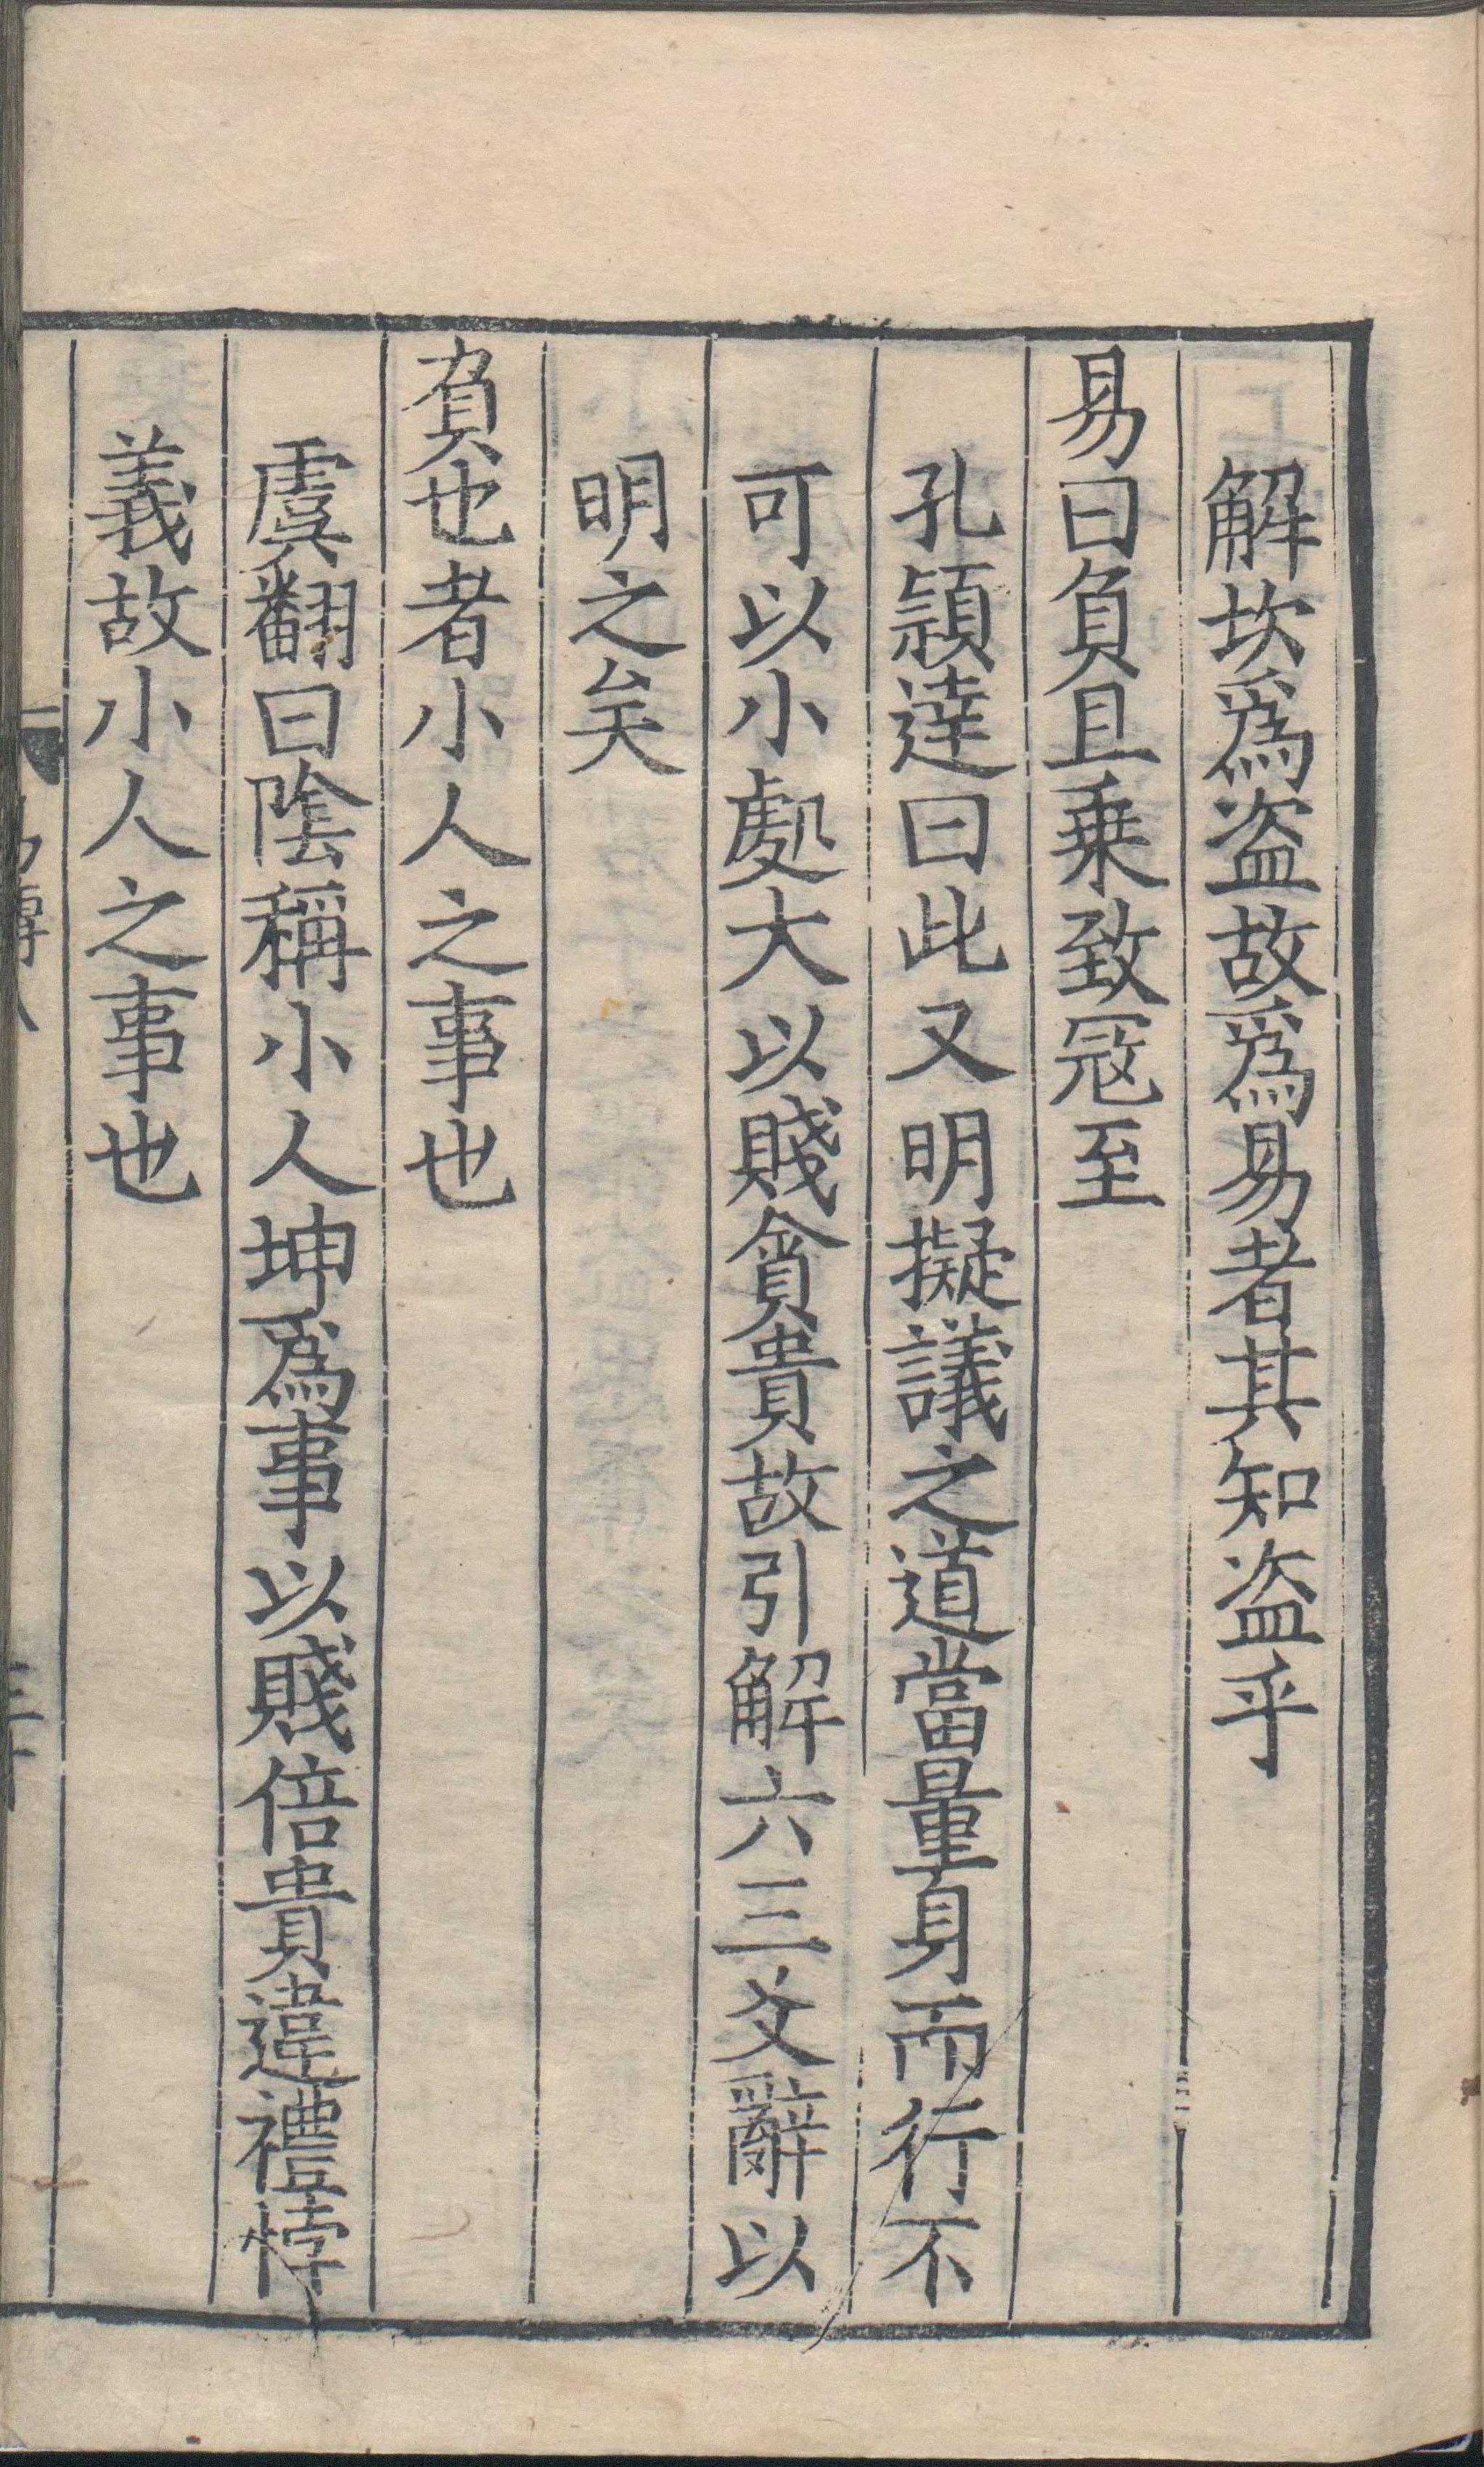 解坎爲盗故爲易者其知盗乎
易曰負且乗致冦至
孔頴逹曰此又明擬議之道當量身而行不
可以小處大以賤貪貴故引解六三爻辭以
明之矣
負也者小人之事也
虞翻曰隂稱小人坤爲事以賤倍貴違禮悖
義故小人之事也